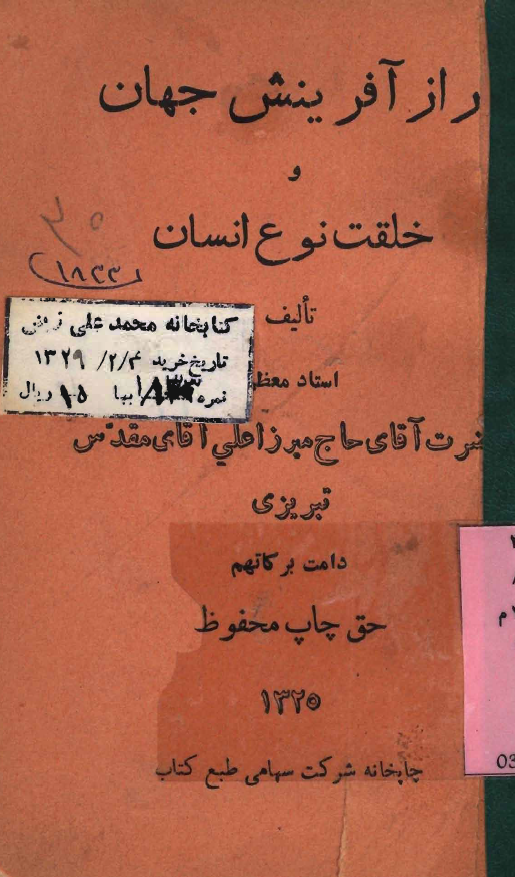 راز آفرینش جهان
و
خلقت نوع انسان
۳۰
(۱۸۳۳)
تألیف
کتابخانه محمد علی
تاریخ خرید ۴/۲/ ۱۳۲۹
نمره بها ۱۵ ریال
استاد معظ
ضرت آقای حاج میرزا علی آقای مقدّس
تبریزی
دامت برکاتهم
حق چاپ محفوظ
۱۳۲۵
چاپخانه شرکت سهامی طبع کتاب
م
03